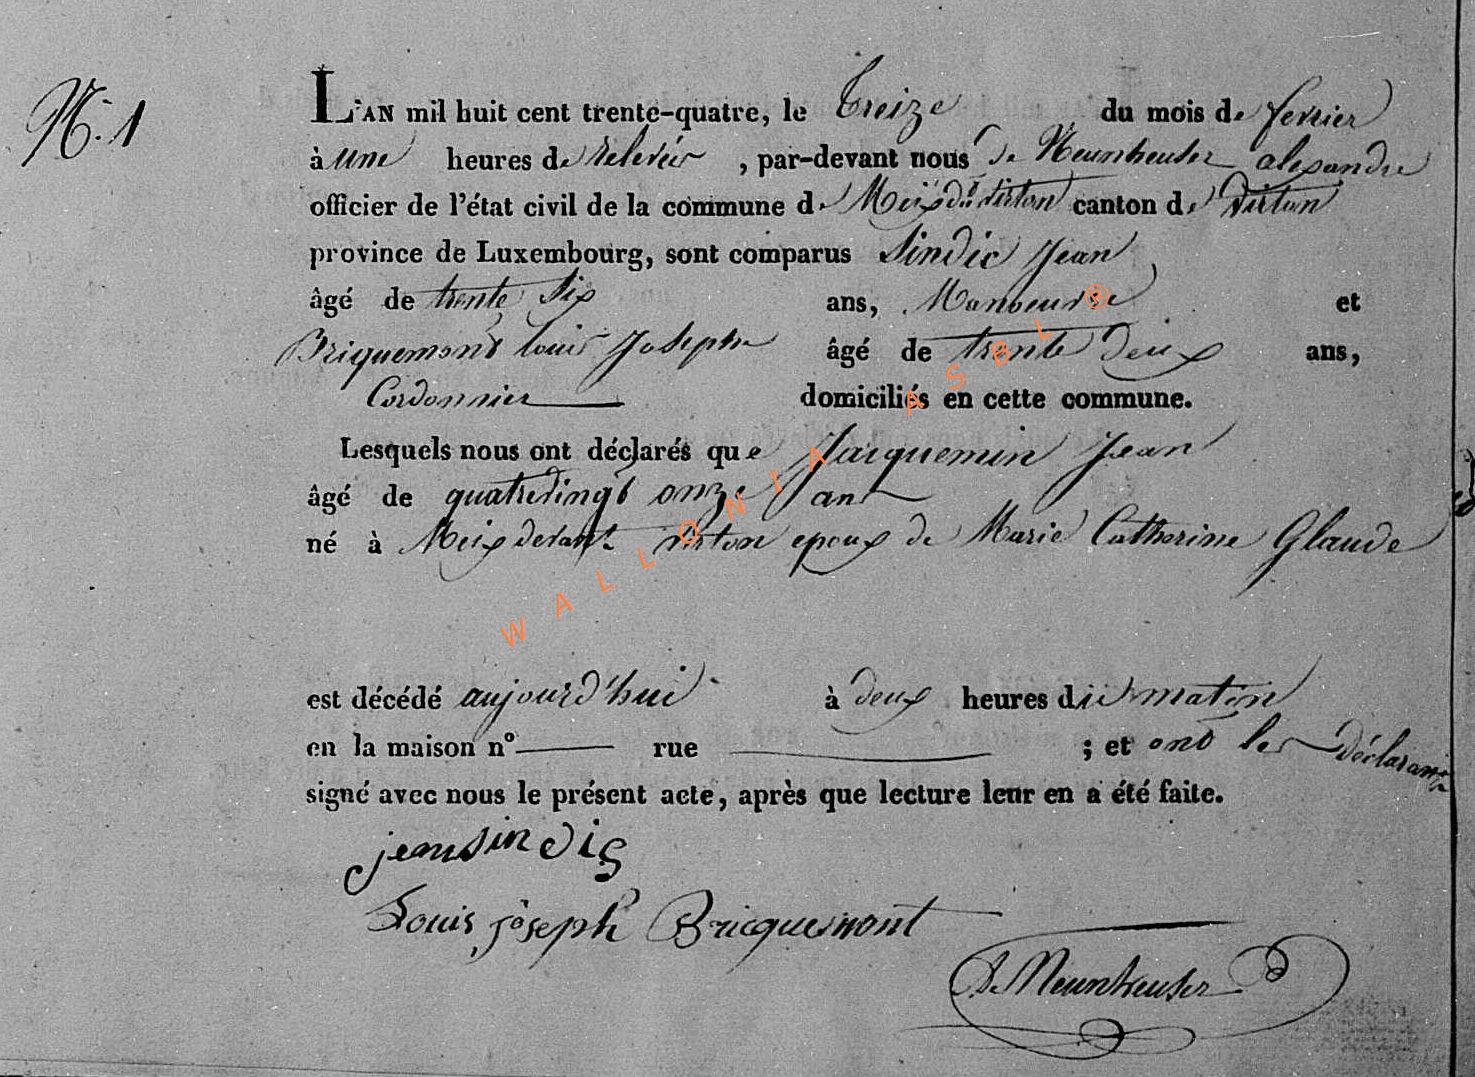 N.o 1
L'AN mil huit cent trente-quatre, le treize du mois de fevrier
à une heures de relevée, par-devant nous de Neunheuser alexandre
officier de l'état civil de la commune de Meix dt virton canton de virton
province de Luxembourg, sont comparus Sindic Jean
âgé de trente six ans, Manoeuvre et
Briquemont louis Joseph âgé de trente deux ans,
Cordonnier domiciliés en cette commune.
Lesquels nous ont déclarés que Jacquemin Jean
âgé de quatrevingt onze ans
né à Meix devant virton epoux de Marie Catherine Glaude
est décédé aujourd'hui à deux heures du matin
en la maison n° rue ; et ont les déclarants
signé avec nous le présent acte, après que lecture leur en a été faite.
jean sindic
Louis joseph Bricquemont
de Neunheuser
WALLONIA ASBL ®